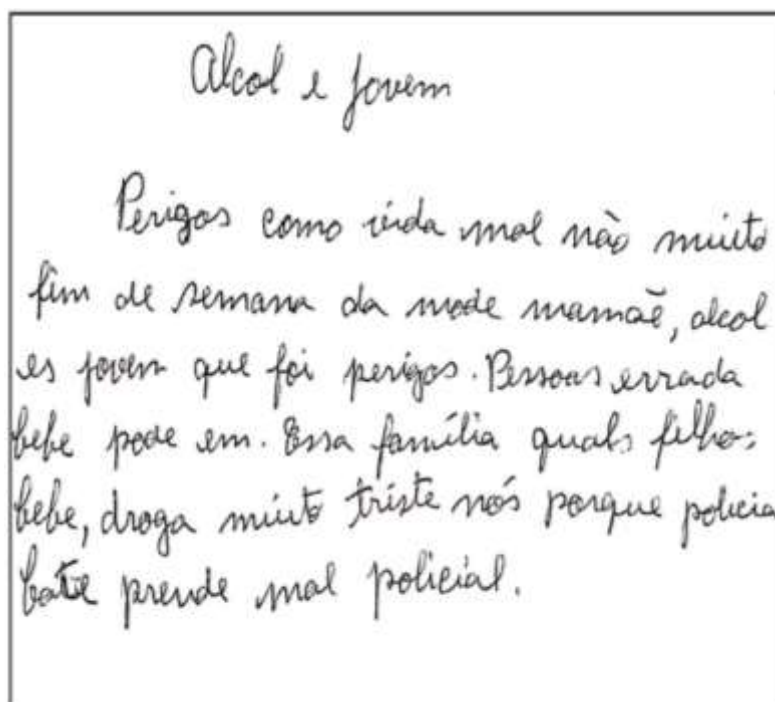 Alcol e jovem
Perigos como vida mal não muito
fim de semana da mode mamãe, alcol
es jovem que foi perigos. Pessoas errada
bebe pode em. Essa família quals filhos
bebe, droga muito triste nós porque policia
bate prende mal policial.